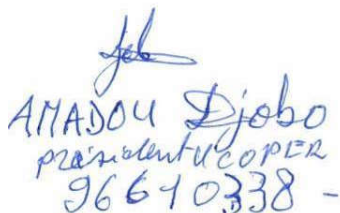 AMADOU Djobo
président UCOPER
96610338 -